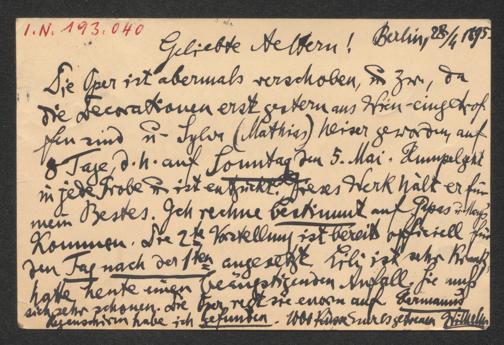 I.N. 193.040
Geliebte Aeltern! Berlin, 28/4 1895.
Die Oper ist abermals verschoben, u zw., da
die Decorationen erst gestern aus Wien eingetrof
fen sind u. Sylva (Mathias) heiser geworden, auf
8 Tage, d.h. auf Sonntag den 5. Mai. Rumpelght
in jede Probe u ist entzückt. Dieses Werk hält er für
mein Bestes. Ich rechne bestimmt auf Papas u.
Kommen. Die 2te Vorstellung ist bereits officiell für
den Tag nach der 1sten angesetzt. Lili ist sehr krank
hatte heute einen beängstigenden Anfall, sie muß
sich sehr schonen. Die Oper regt sie enorm auf. Hermanns
Regenschirm habe ich gefunden. 1000 Küsse Eures Wilhelm